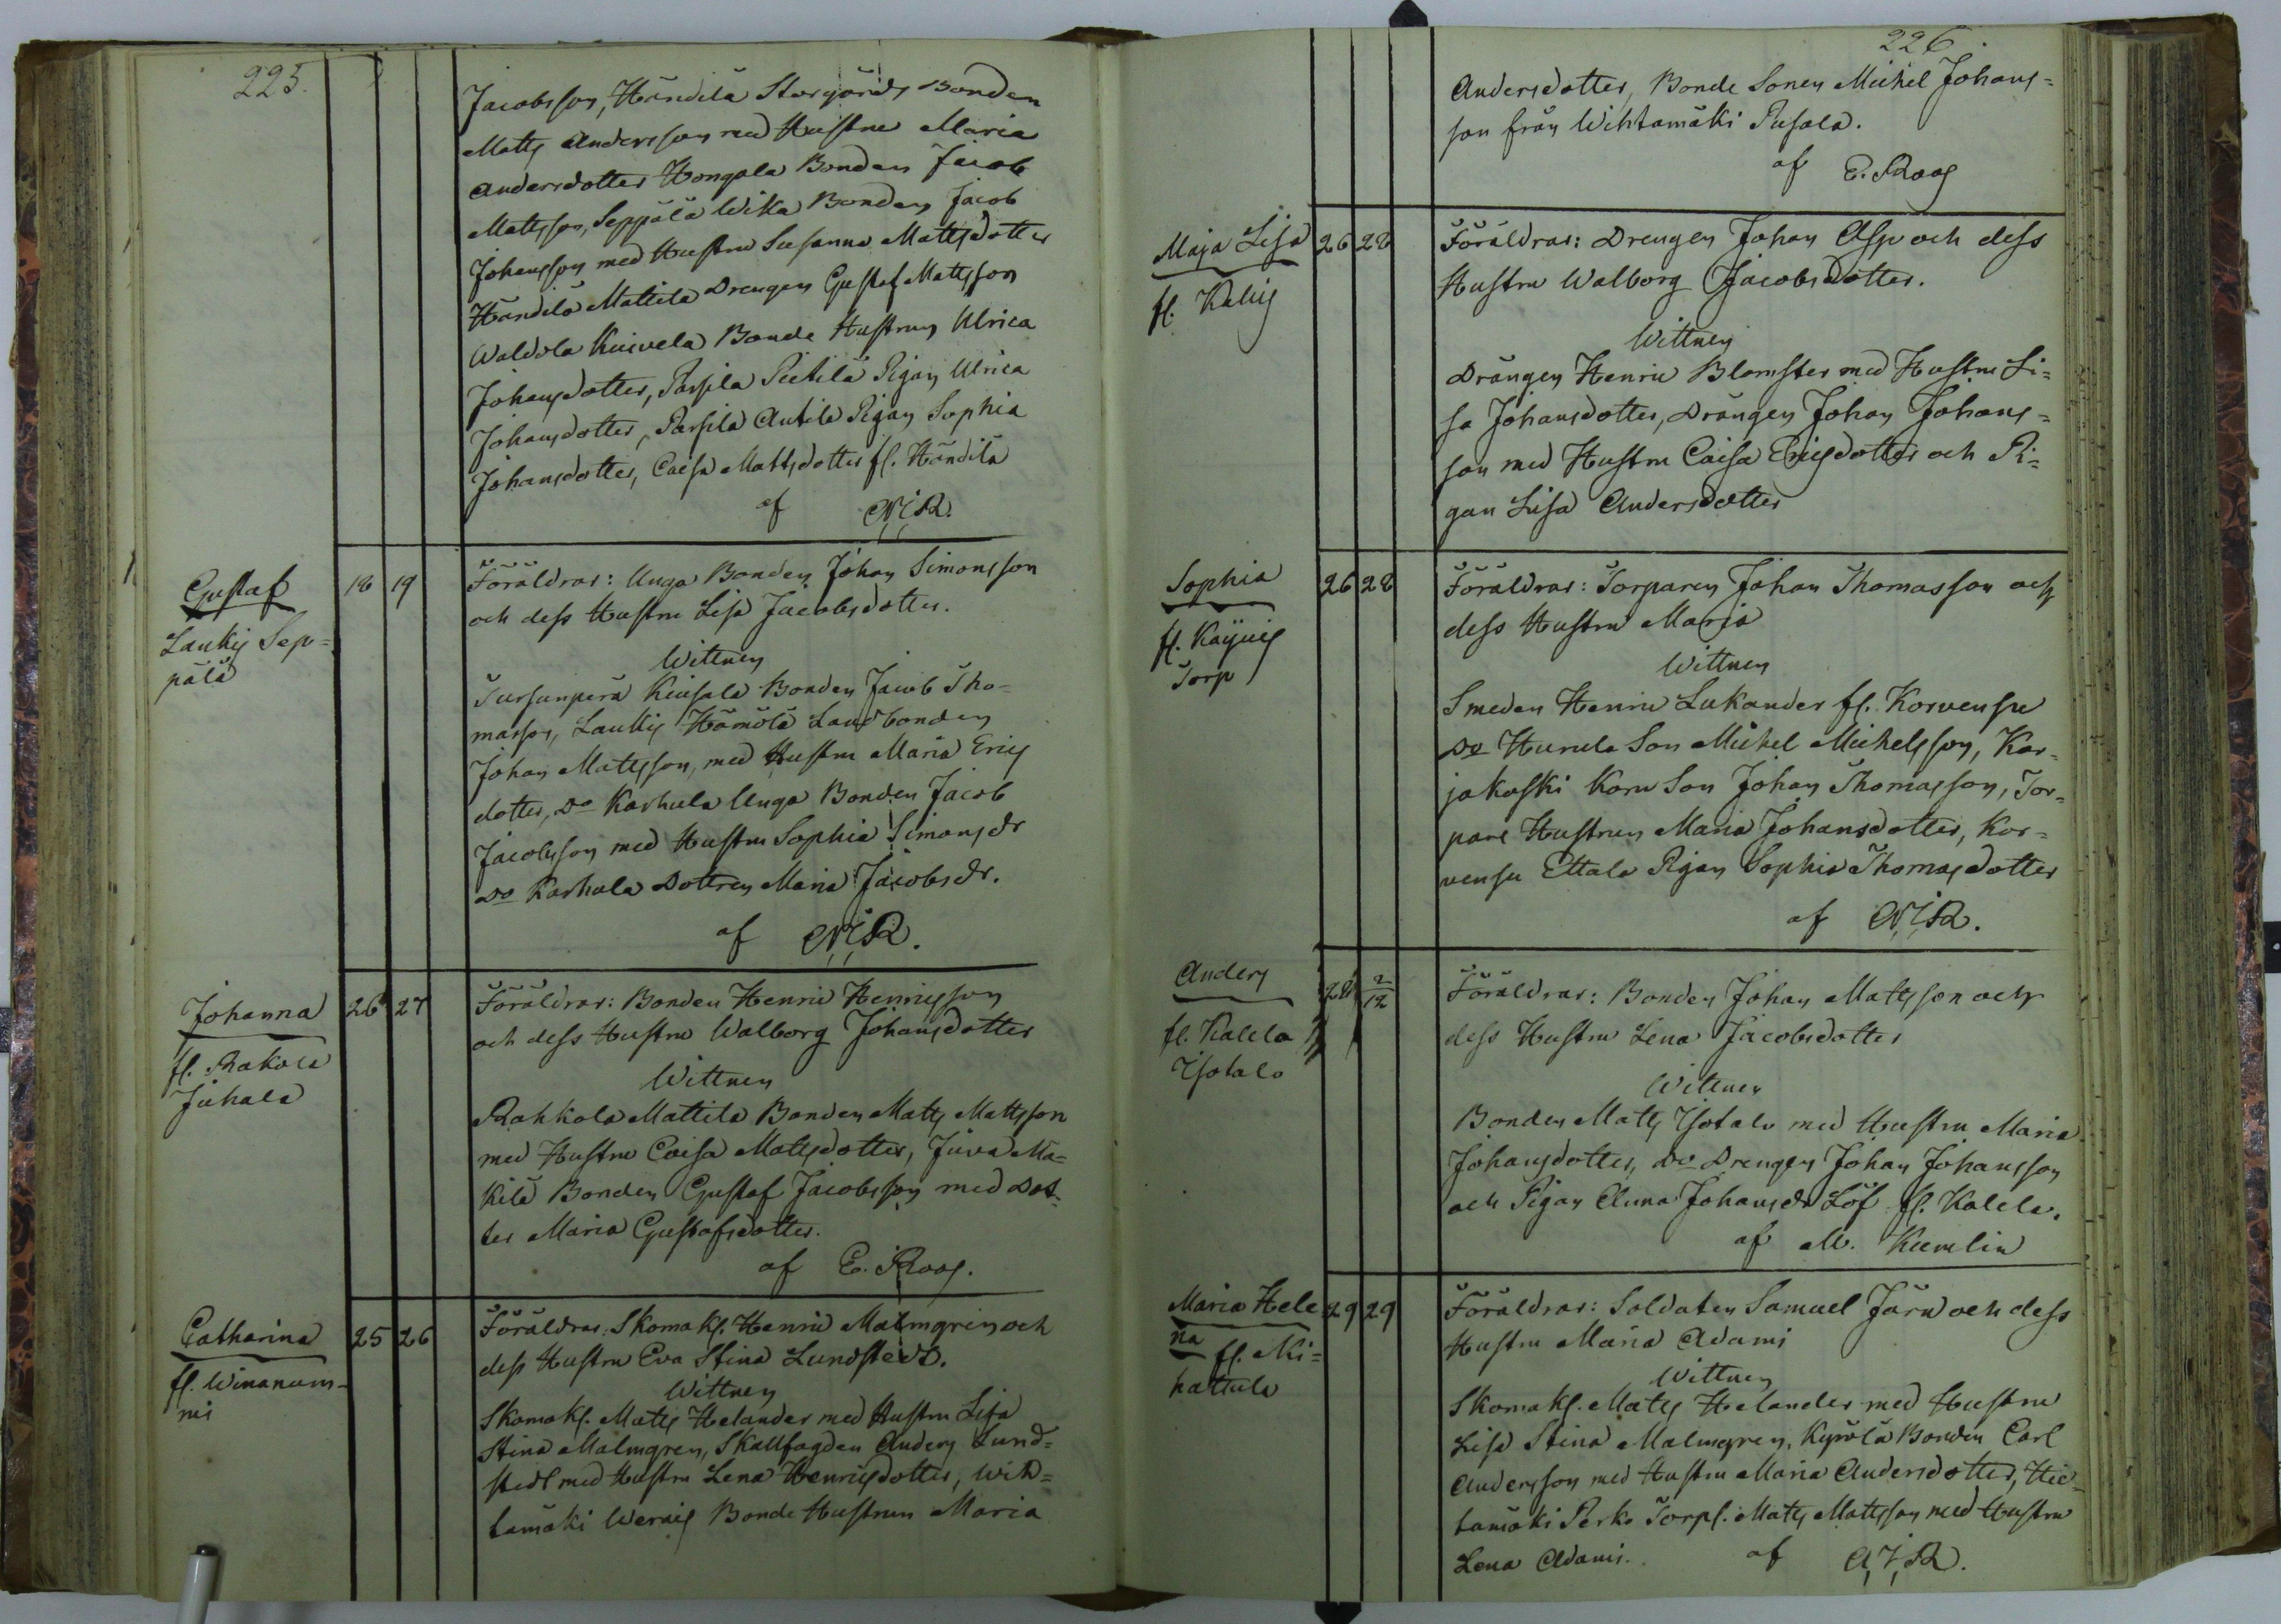 225.
Jacobsson, Händilä Storgårds Bonden
Matts Andersson med Hustru Maria
Andersdotter Hongola Bonden Jacob
Mattsson, Seppälä Wika Bonden Jacob
Johansson med Hustru Susanna Mattsdotter
Händilä Mattila Drengen Gustaf Mattsson
Waldola Kuivela Bonde Hustrun Ulrica
Johansdotter, Passila Pietilä Pigan Ulrica
Johansdotter, Passila Antila Pigan Sophia
Johansdotter, Caisa Mattsdotter fl. Händilä
af
Gustaf
Laukis Sep=
pälä
18 19
Föräldrar: Unga Bonden Johan Simonsson
och dess Hustru Lisa Jacobsdotter.
Wittnen
Tursunperä Bonden Jacob Tho=
masson, Laukis Hämölä Landbonden
Johan Mattsson, med Hustru Maria Erics
dotter, Do Karhula Unga Bonden Jacob
Jacobsson med Hustru Sophia Simonsdr
Do Karhula Dottren Maria Jacobsdr.
af
Johanna
fl. Rakola
Juhala
26 27
Föräldrar: Bonden Henric Henricsson
och dess Hustru Walborg Johansdotter
Wittnen
Rahkola Mattila Bonden Matts Mattsson
med Hustru Caisa Mattsdotter, Juva Ma=
kilä Bonden Gustaf Jacobsson med Dot=
ter Maria Gustafsdotter.
af E. Roos.
Catharina
fl. Winanum=
mi
25 26
Föräldrar: Skomak. Henric Malmgren och
dess Hustru Eva Stina Lundstedt.
Wittnen
Skomak. Matts Helander med Hustru Lisa
Stina Malmgren, Skallfogden Anders Lund=
stedt med Hustru Lena Henricsdotter, Wih=
tamäki Bonde Hustrun Maria
226
Andersdotter, Bonde Sonen Michel Johans=
son från Wihtamäki Pusala.
af E. Roos
Maja Lisa
fl. Kalis
26 28
Föräldrar: Drengen Johan Asp och dess
Hustru Walborg Jacobsdotter.
Wittnen
Drängen Henric Blomster med Hustru Li=
sa Johansdotter, Drängen Johan Johans=
son med Hustru Caisa Ericsdotter och Pi=
gan Lisa Andersdotter
Sophia
fl.
Torp
26 28
Föräldrar: Torparen Johan Thomasson och
dess Hustru Maria
Wittnen
Smeden Henric Lukander fl. Korvensu
Do Hurula Son Michel Michelsson, Kar=
jakoski Korn Son Johan Thomasson, Tor=
pare Hustrun Maria Johansdotter, Kor=
vensu Ettala Pigan Sophia Thomasdotter
af
Anders
fl. Kalela
Isotalo
28 2/12
Föräldrar: Bonden Johan Mattsson och
dess Hustru Lena Jacobsdotter
Wittnen
Bonden Matts Isotalo med Hustru Maria
Johansdotter, Do Drengen Johan Johansson
och Pigan Anna Johansdr Löf fl. Kalela.
af M. Kumlin
Maria Hele
na fl. Mi=
hattula
29 29
Föräldrar: Soldaten Samuel Järn och dess
Hustru Maria Adami
Wittnen
Skomak. Matts Helander med Hustru
Lisa Stina Malmgren, Kyrölä Bonden Carl
Andersson med Hustru Maria Andersdotter, Hie=
tamäki Perko Torp. Matts Mattsson med Hustru
Lena Adami. af